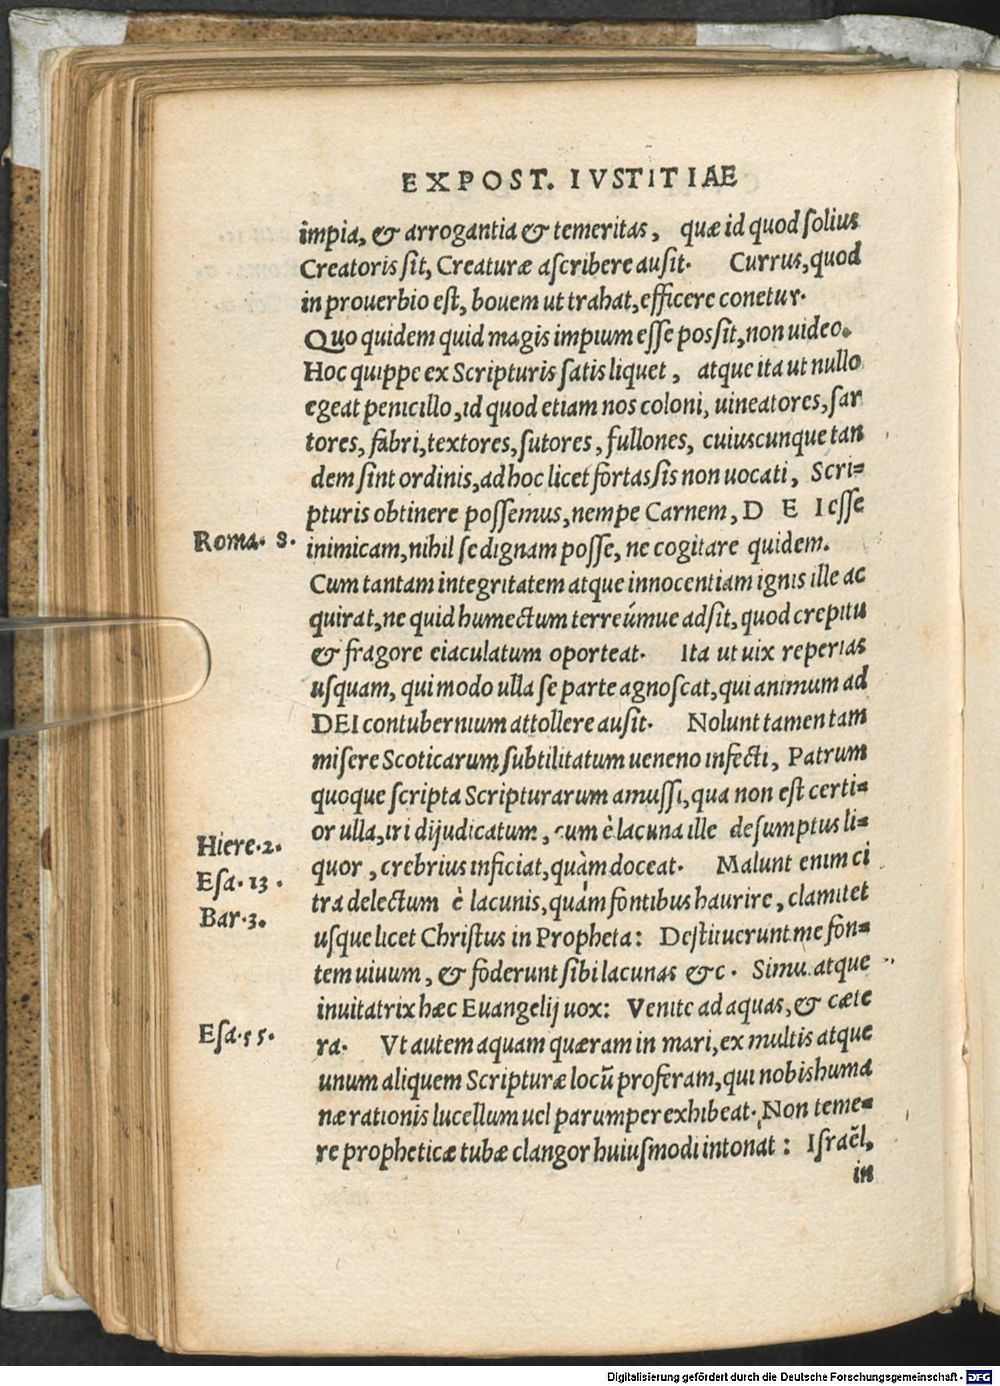 EXPOST. IVSTITIAE
impia, & arrogantia & temeritas, quæ id quod solius
Creatoris sit, Creaturæ ascribere ausit. Currus, quod
in prouerbio est, bouem ut trahat, efficere conetur.
Quo quidem quid magis impium esse possit, non uideo.
Hoc quippe ex Scripturis satis liquet, atque ita ut nullo
egeat penicillo, id quod etiam nos coloni, uineatores, sar
tores, fabri, textores, sutores, fullones, cuiuscunque tan
dem sint ordinis, ad hoc licet fortassis non uocati, Scri-
pturis obtinere possemus, nempe Carnem, D E I esse
Roma. 8. inimicam, nihil se dignam posse, ne cogitare quidem.
Cum tantam integritatem atque innocentiam ignis ille ac
quirat, ne quid humectum terreúmue adsit, quod crepitu
& fragore eiaculatum oporteat. Ita ut uix reperias
usquam, qui modo ulla se parte agnoscat, qui animum ad
DEI contubernium attollere ausit. Nolunt tamen tam
misere Scoticarum subtilitatum ueneno infecti, Patrum
quoque scripta Scripturarum amussi, qua non est certi-
or ulla, iri dijudicatum, cum è lacuna ille desumptus li-
Hiere. 2. quor, crebrius inficiat, quàm doceat. Malunt enim ci
Esa. 13. tra delectum è lacunis, quàm fontibus haurire, clamitet
Bar. 3. usque licet Christus in Propheta: Destituerunt me fon-
tem uiuum, & foderunt sibi lacunas &c. Simu atque
inuitatrix hæc Euangelij uox: Venite ad aquas, & cæte
Esa. 55. ra. Vt autem aquam quæram in mari, ex multis atque
unum aliquem Scripturæ locũ proferam, qui nobis huma
næ rationis lucellum uel parumper exhibeat. Non teme-
re propheticæ tubæ clangor huiusmodi intonat: Israẽl,
in
Digitalisierung gefördert durch die Deutsche Forschungsgemeinschaft - DFG